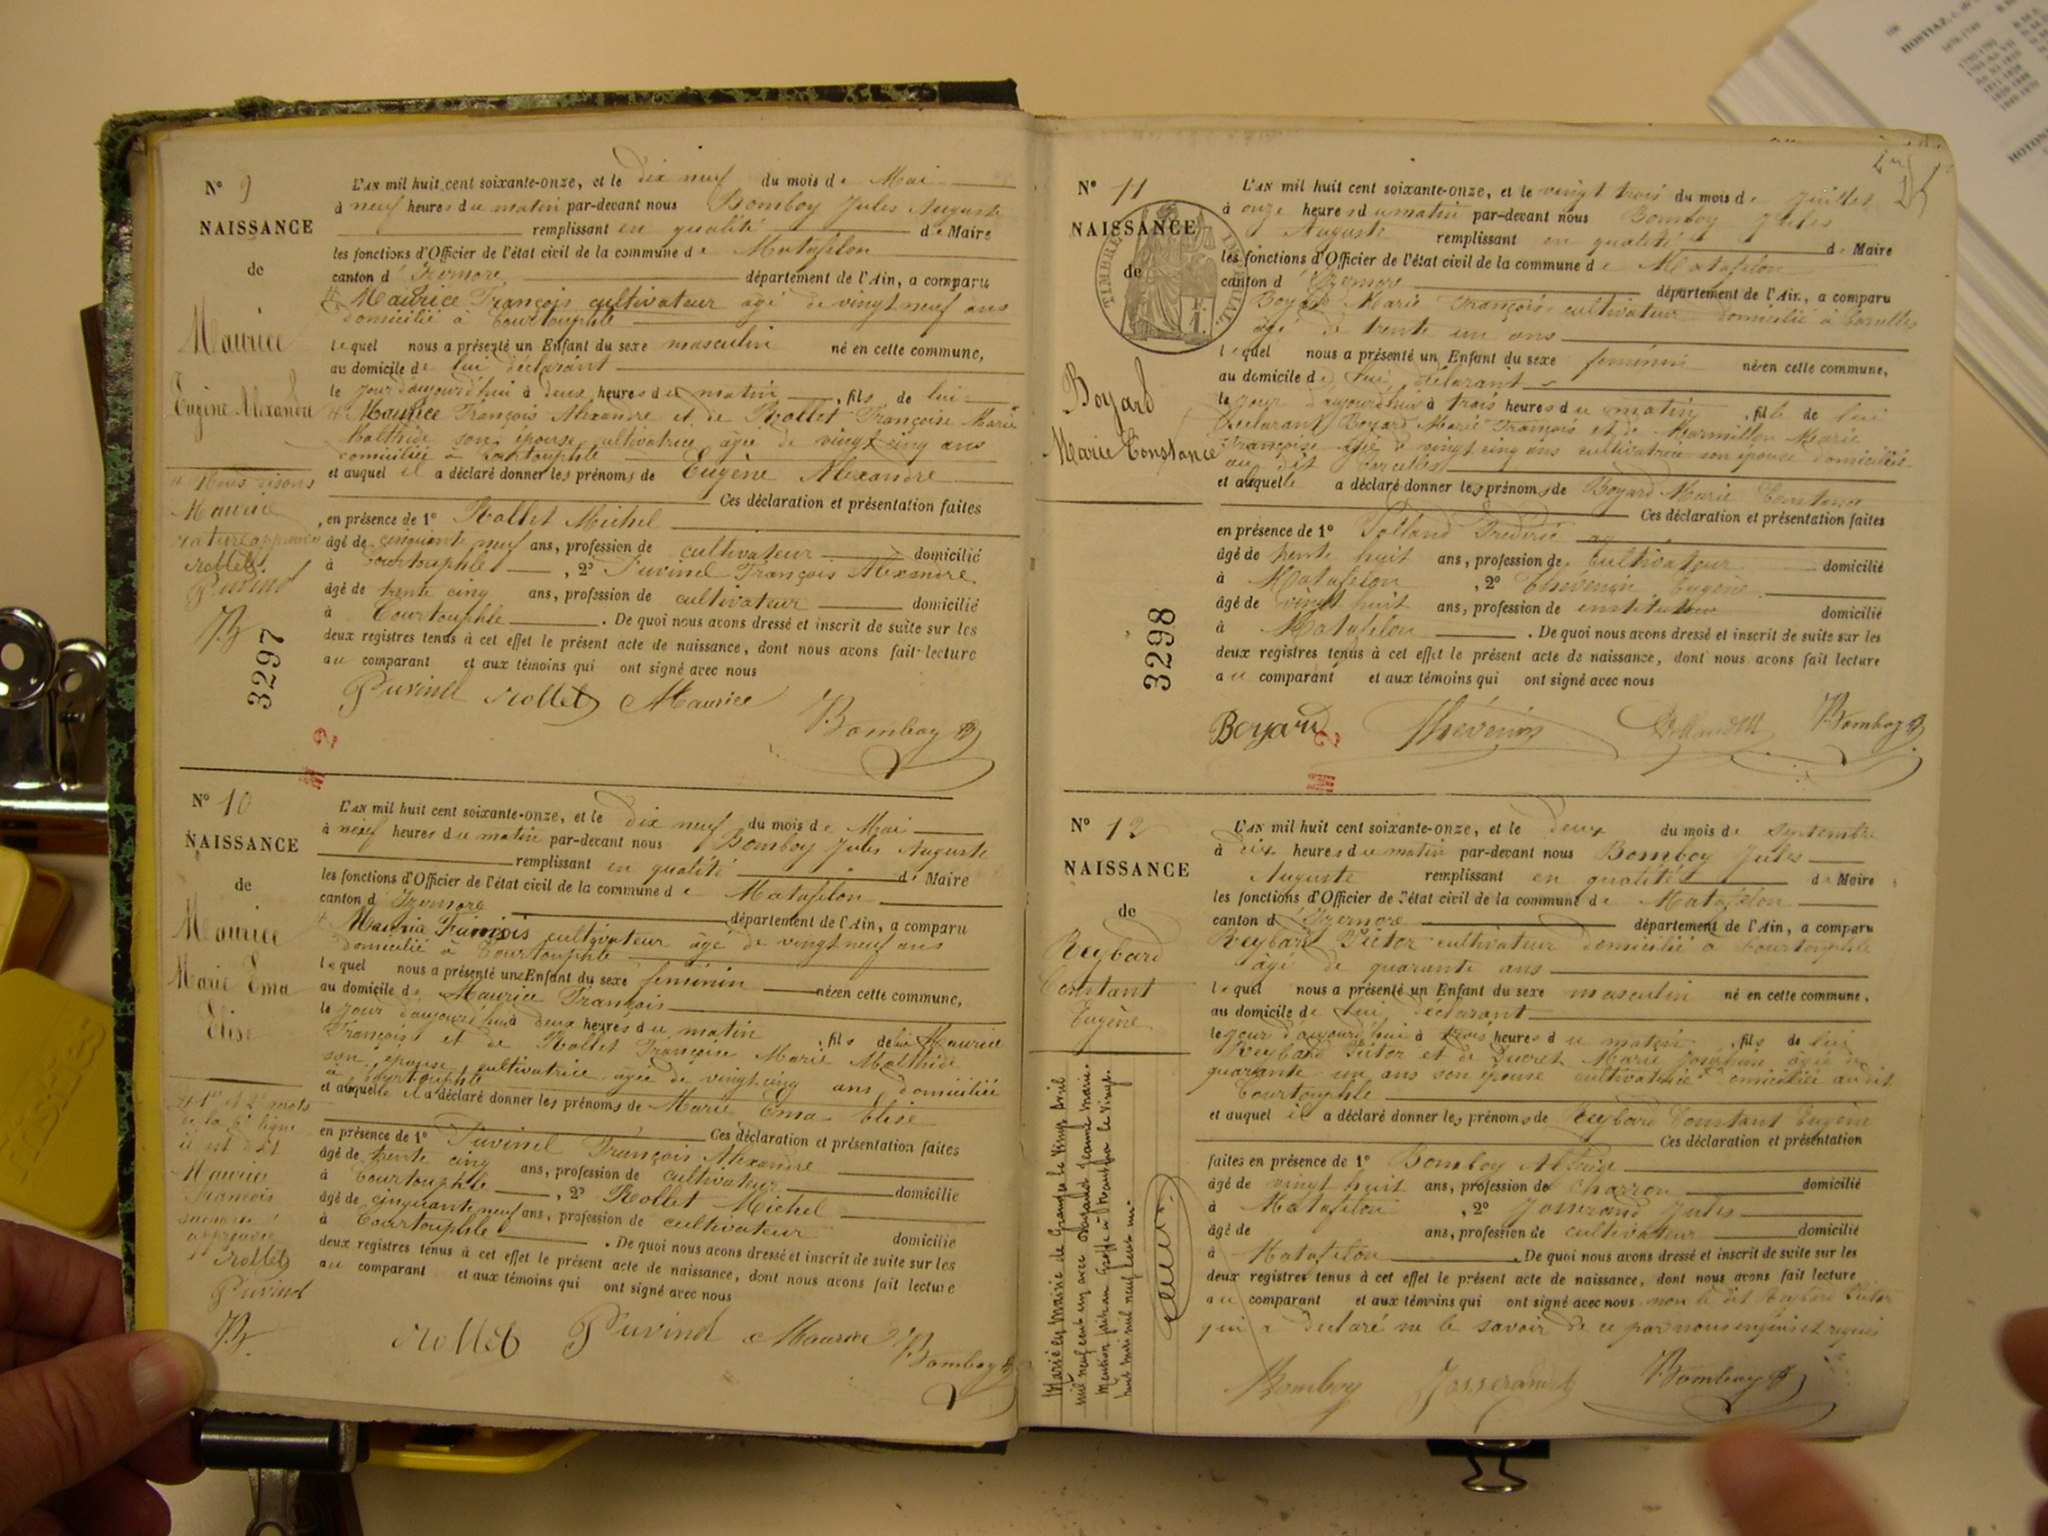 N° 9
NAISSANCE
de
Maurice
Eugène Alexandre
Nous disons
Maurice
rature approuvée
Rollet
Puvinel
B
3297
L'AN mil huit cent soixante-onze, et le dix neuf du mois de Mai
à neuf heures du matin par-devant nous Bomboy Jules Auguste
remplissant en qualité de Maire
les fonctions d'Officier de l'état civil de la commune de Matafelon
canton d'Izernore département de l'Ain, a comparu
Maurice François cultivateur agé de vingt neuf ans
domicilié à Courtouphle
lequel nous a présenté un Enfant du sexe masculin né en cette commune,
au domicile de lui déclarant
le jour d'aujourd'hui à deux heures du matin, fils de lui
Maurice François Alexandre et de Rollet Françoise Marie
Mathilde son épouse cultivatrice agée de vingt cinq ans
domiciliée à Courtouphle
et auquel il a déclaré donner les prénoms de Eugène Alexandre
Ces déclaration et présentation faites
en présence de 1° Rollet Michel
âgé de cinquante neuf ans, profession de cultivateur domicilié
à Courtouphle, 2° Puvinel François Alexandre
âgé de trente cinq ans, profession de cultivateur domicilié
à Courtouphle. De quoi nous avons dressé et inscrit de suite sur les
deux registres tenus à cet effet le présent acte de naissance, dont nous avons fait lecture
au comparant et aux témoins qui ont signé avec nous
Puvinel Rollet Maurice
Bomboy
N° 10
NAISSANCE
de
Maurice
Marie Ema
Elise
il est dit
Maurice
François
approuvé
Rollet
Puvinel
B
L'AN mil huit cent soixante-onze, et le dix neuf du mois de Mai
à neuf heures du matin par-devant nous Bomboy Jules Auguste
remplissant en qualité de Maire
les fonctions d'Officier de l'état civil de la commune de Matafelon
canton d'Izernore département de l'Ain, a comparu
Maurice François cultivateur agé de vingt neuf ans
domicilié à Courtouphle
lequel nous a présenté une Enfant du sexe féminin née en cette commune,
au domicile de Maurice François
le jour d'aujourd'hui à deux heures du matin, fils de lui Maurice
François et de Rollet Françoise Marie Mathilde
son épouse cultivatrice agée de vingt cinq ans domiciliée
à Courtouphle
et auquelle il a déclaré donner les prénoms de Marie Ema Elise
Ces déclaration et présentation faites
en présence de 1° Puvinel François Alexandre
âgé de trente cinq ans, profession de cultivateur domicilié
à Courtouphle, 2° Rollet Michel
âgé de cinquante neuf ans, profession de cultivateur domicilié
à Courtouphle. De quoi nous avons dressé et inscrit de suite sur les
deux registres tenus à cet effet le présent acte de naissance, dont nous avons fait lecture
au comparant et aux témoins qui ont signé avec nous
Rollet Puvinel Maurice Bomboy
N° 11
NAISSANCE
de
TIMBRE IMPÉRIAL
Boyard
Marie Constance
3298
L'AN mil huit cent soixante-onze, et le vingt trois du mois de Juillet
à onze heures du matin par-devant nous Bomboy Jules
Auguste remplissant en qualité de Maire
les fonctions d'Officier de l'état civil de la commune de Matafelon
canton d'Izernore département de l'Ain, a comparu
Boyard Marie François cultivateur domicilié à Corcelles
âgé de trente un ans
lequel nous a présenté un Enfant du sexe féminin née en cette commune,
au domicile de lui déclarant
le jour d'aujourd'hui à trois heures du matin, fille de lui
déclarant Boyard Marie François et de Marmillon Marie
Françoise agée de vingt cinq ans cultivatrice son épouse domiciliée
au dit Corcelles
et auquelle a déclaré donner les prénoms de Boyard Marie Constance
Ces déclaration et présentation faites
en présence de 1° Rolland Frédéric
âgé de trente huit ans, profession de cultivateur domicilié
à Matafelon, 2° Thévenin Eugène
âgé de vingt huit ans, profession de instituteur domicilié
à Matafelon. De quoi nous avons dressé et inscrit de suite sur les
deux registres tenus à cet effet le présent acte de naissance, dont nous avons fait lecture
au comparant et aux témoins qui ont signé avec nous
Boyard Thévenin Rolland Bomboy
N° 12
NAISSANCE
de
Reybard
Constant
Eugène
Marié en mairie de Granges le vingt avril
mil neuf cent un avec Jeanne Marie.
L'AN mil huit cent soixante-onze, et le deux du mois de septembre
à dix heures du matin par-devant nous Bomboy Jules
Auguste remplissant en qualité de Maire
les fonctions d'Officier de l'état civil de la commune de Matafelon
canton d'Izernore département de l'Ain, a comparu
Reybard Victor cultivateur domicilié à Courtouphle
âgé de quarante ans
lequel nous a présenté un Enfant du sexe masculin né en cette commune,
au domicile de lui déclarant
le jour d'aujourd'hui à trois heures du matin, fils de lui
Reybard Victor et de Ducret Marie Josephine agée de
quarante un ans son épouse cultivatrice domiciliée audit
Courtouphle
et auquel il a déclaré donner les prénoms de Reybard Constant Eugène
Ces déclaration et présentation
faites en présence de 1° Bomboy
âgé de vingt huit ans, profession de charron domicilié
à Matafelon, 2° Josserand Jules
âgé de ans, profession de cultivateur domicilié
à Matafelon. De quoi nous avons dressé et inscrit de suite sur les
deux registres tenus à cet effet le présent acte de naissance, dont nous avons fait lecture
au comparant et aux témoins qui ont signé avec nous non le dit Reybard Victor
qui a déclaré ne le savoir de ce par nous enquis et requis
Bomboy Josserand Bomboy
HOSTIAZ